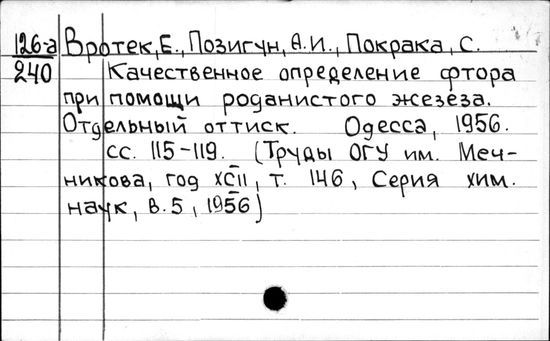 126-а Вротек, Е., Позигун, А.И., Покрака, С.
240 Качественное определение фтора
при помощи роданистого жезеза.
Отдельный оттиск. Одесса, 1956.
сс. 115-119. (Труды ОГУ им. Меч-
никова, год XCII, т. 146, Серия хим.
наук, в.5, 1956)